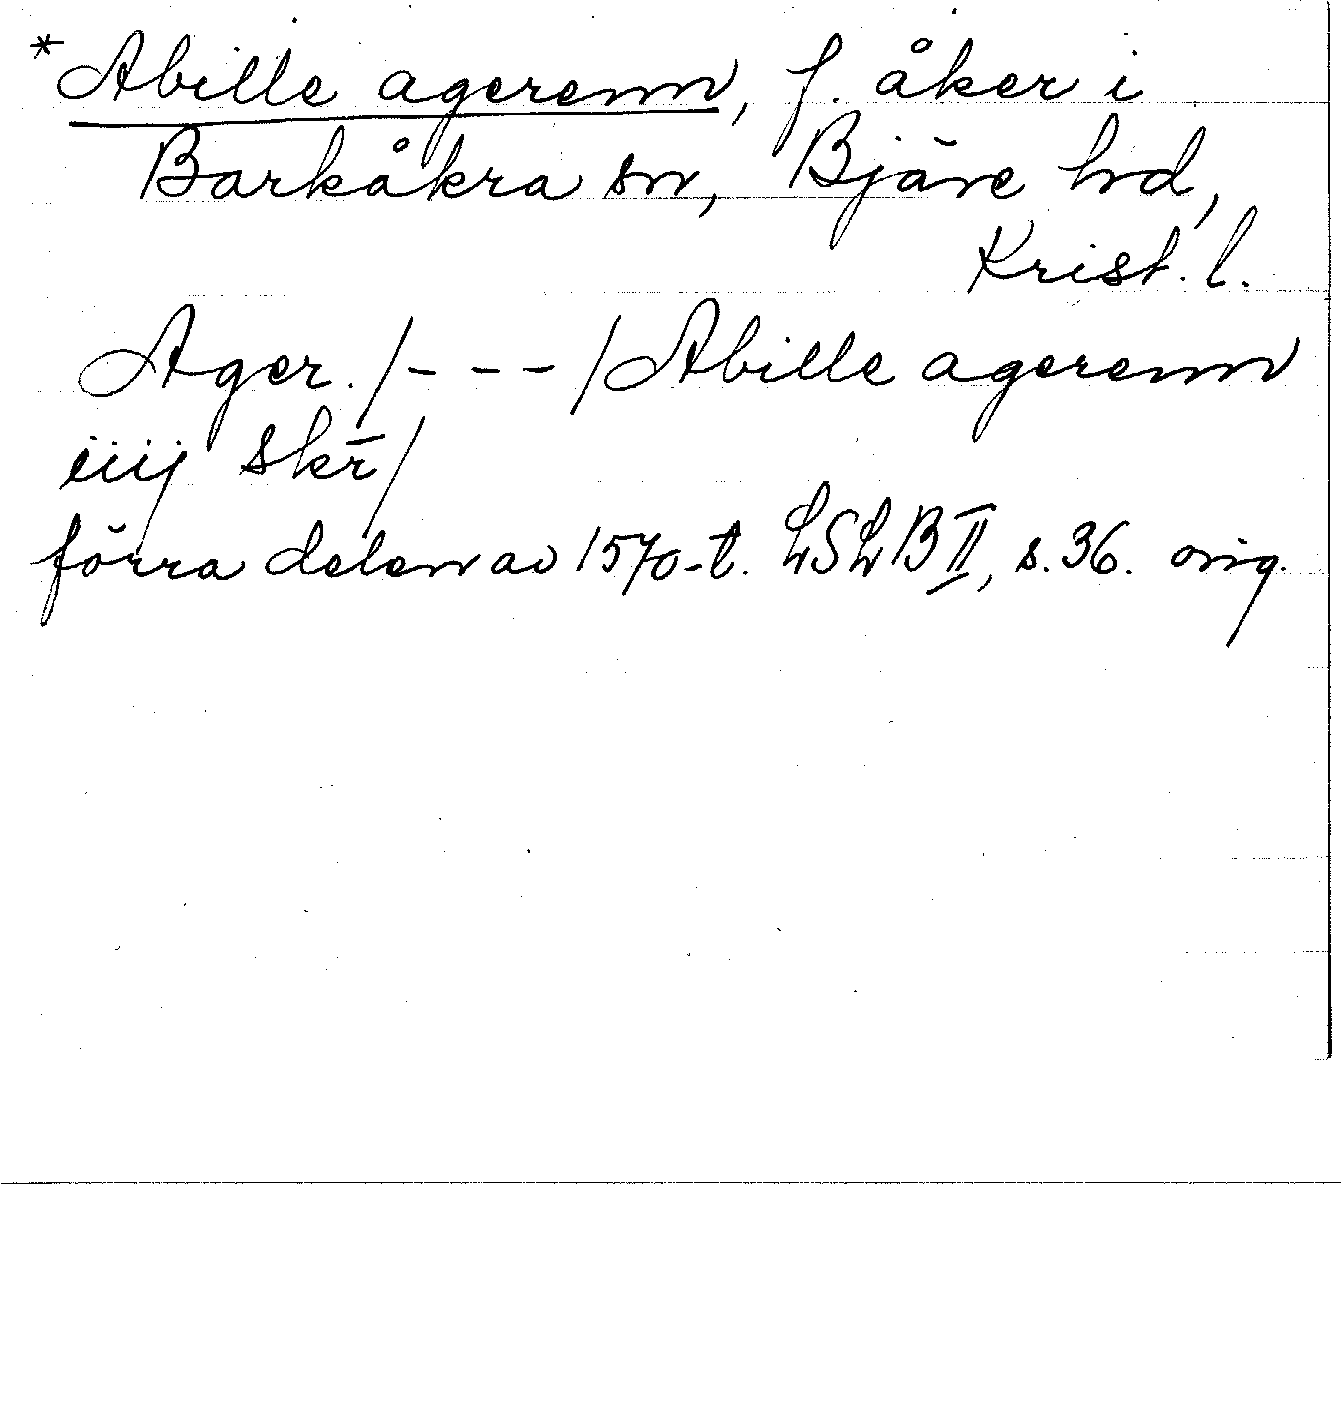 *Abille agerenn, f. åker i
Barkåkra sn, Bjäre hd,
Krist. l.
Ager. /- - - / Abille agerenn
iiij skr̄/
förra delen av 1570-t. LSLB II, s. 36. orig.